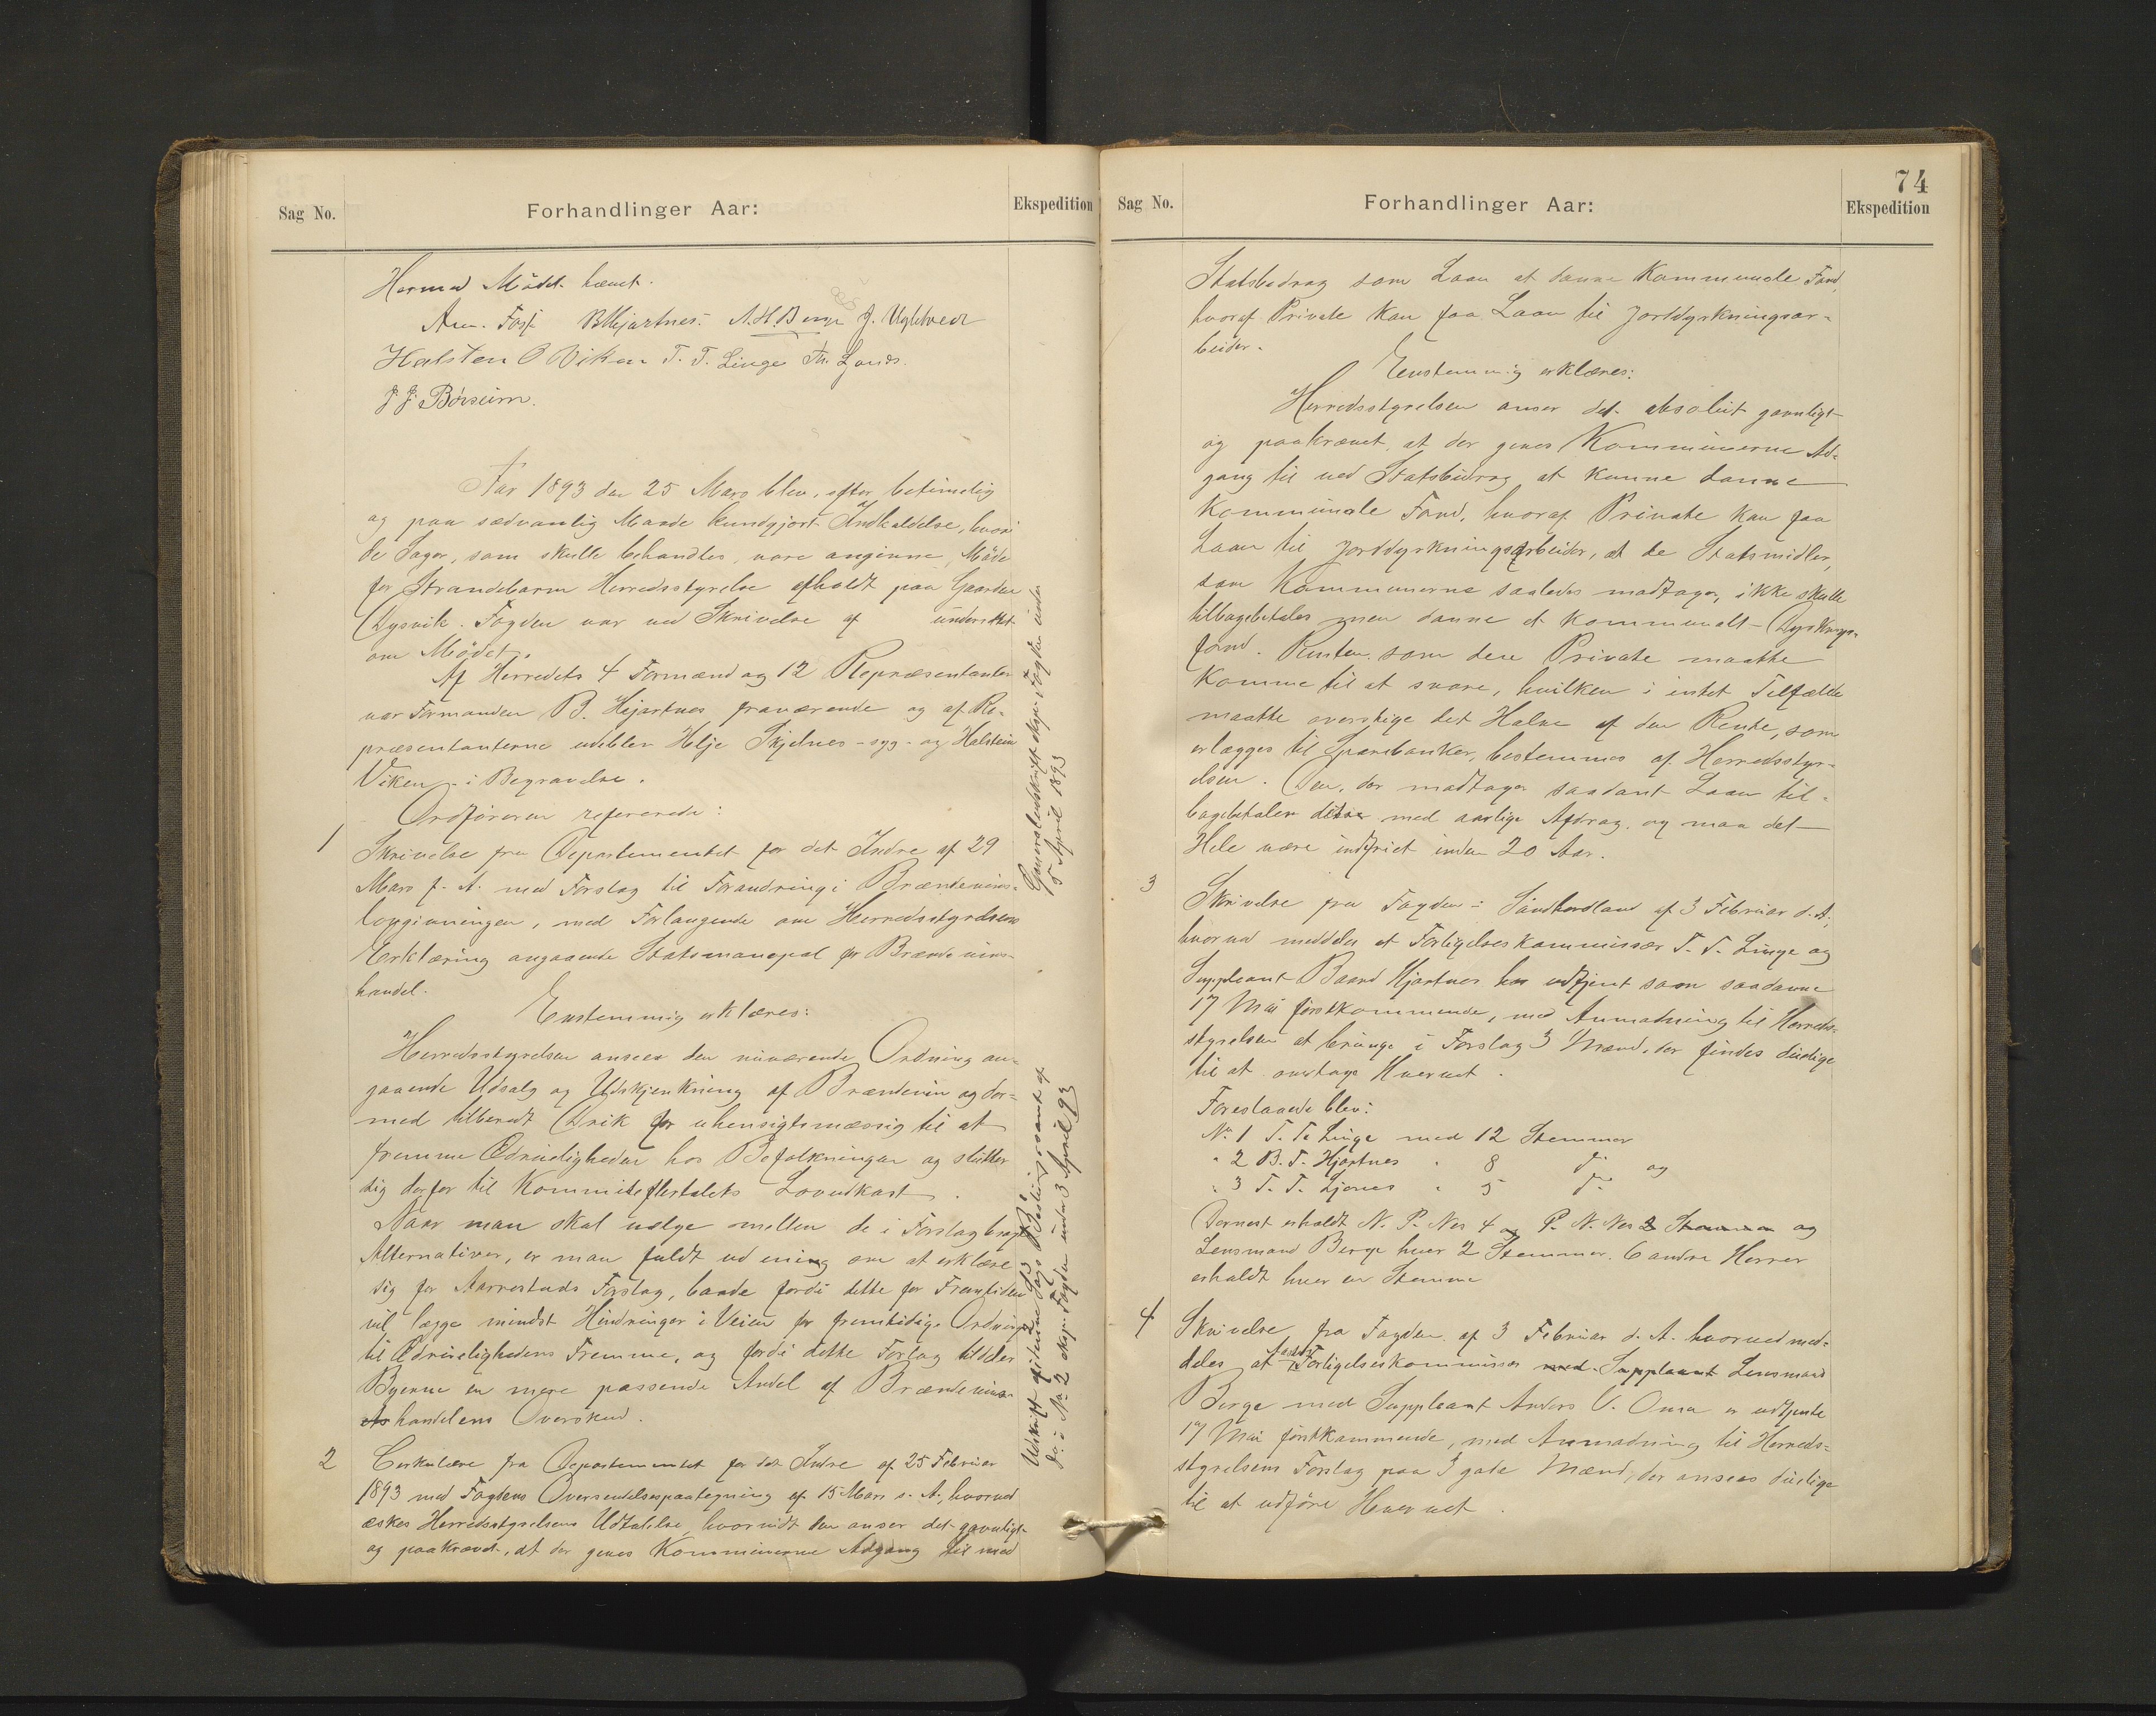 Sag No.
Forhandlinger Aar:
Ekspedition
Hermed Mødet hævet.
BHjartnes. A. H. Berge J. Ugletveit
Halsten O Viken T. T. Linge Th. Ljones.
J J Børseim.
Aar 1893 den 25 Mars blev, efter betimelig
og paa sædvanlig Maade kundgjort Indkaldelse, hvori
de Sager, som skulle behandles, vare angivne, Møde
for Strandebarm Herredsstyrelse afholdt paa Gaarden
Dysvik. Fogden var ved Skrivelse af underrettet
om Mødet.
Af Herredets 4 Formænd og 12 Repræsentanter
var Formanden B. Hjartnes fraværende og af Re-
præsentanterne udeblev Helje Skjelnes - syg - og Halstein
Viken - i Begravelse.
Ordføreren refererede:
1
Skrivelse fra Departementet for det Indre af 29
Mars f. A. med Forslag til Forandring i Brændevins-
lovgivningen, med Forlangende om Herredsstyrelsens
Erklæring angaaende Statsmonopol for Brændevins-
handel.
Enstemmig erklæres:
Herredsstyrelsen ansees den nuværende Ordning an-
gaaende Udsalg og Udskjenkning af Brændevin og der-
med tilberedt Drik for uhensigtsmæssig til at
fremme Ædrueligheden hos Befolkningen og slutter
sig derfor til Kommiteflertalets Lovudkast.
Naar man skal vælge mellem de i Forslag bragte
Alternativer, er man fuldt ud enig om at erklære
sig for Aarrestads Forslag, baade fordi dette for Fremtiden
vil lægge mindst Hindringer i Veien for fremtidige Ordning
til Ædruelighedens Fremme, og fordi dette Forslag tildeler
Byerne en mere passende Andel af Brændevins-
handelens Overskud.
2
Cirkulære fra Departementet for det Indre af 25 Februar
1893 med Fogdens Oversendelsespaategning af 15 Mars s. A., hvorved
æskes Herredsstyrelsens Udtalelse, hvorvidt den anser det gavnligt
og paakrævet, at der gives Kommunerne Adgang til med
5 April 1893
Udskrift af denne Sags
do i No 2 eksp. Fogden under 3 April 93
74
Sag No.
Forhandlinger Aar:
Ekspedition
Statsbidrag som Laan at danne Kommunale Fond,
hvoraf Private kan faa Laan til Jorddyrkningsar-
beider.
Enstemmig erklæres:
Herredsstyrelsen anser det absolut gavnligt
og paakrævet, at der gives Kommunerne Ad-
gang til ved Statsbidrag at kunne danne
Kommunale Fond, hvoraf Private kan faa
Laan til Jorddyrkningsarbeider, at de Statsmidler,
som Kommunerne saaledes modtager, ikke skulle
tilbagebetales men danne et Kommunalt Dyrknings-
fond. Renten, som den Private maatte
komme til at svare, hvilken i intet Tilfælde
maatte overstige det Halve af den Rente, som
erlægges til Sparebanker, bestemmes af Herredsstyr-
elsen. Den, der modtager saadant Laan til-
bagebetaler dette med aarlige Afdrag, og maa det
Hele være indfriet inden 20 Aar.
3
Skrivelse fra Fogden i Søndhordland af 3 Februar d. A.,
hvorved meddeles at Forligelseskommissær T. T. Linge og
Suppleant Baard Hjartnes har udtjent som saadanne
17 Mai førstkommende, med Anmodning til Herreds-
styrelsen at bringe i Forslag 3 Mænd, der findes duelige
til at overtage Hvervet.
Foreslaaede blev:
No. 1 T. T. Linge med 12 Stemmer
" 2 B. T. Hjartnes " 8 do og
" 3 T. T. Ljones " 5 do
Dernest erholdt N. P. Nes 4 og P. N. Nes 3 Stemmer og
Lensmand Berge hver 2 Stemmer. 6 andre Herrer
erholdt hver en Stemme
4
Skrivelse fra Fogden af 3 Februar d. A. hvorved med-
deles at Forligelseskommissær med Suppleant Lensmand
Berge med Suppleant Anders O. Oma er udtjente
17 Mai førstkommende, med Anmodning til Herreds-
styrelsens Forslag paa 3 gode Mænd, der ansees duelige
til at udføre Hvervet.